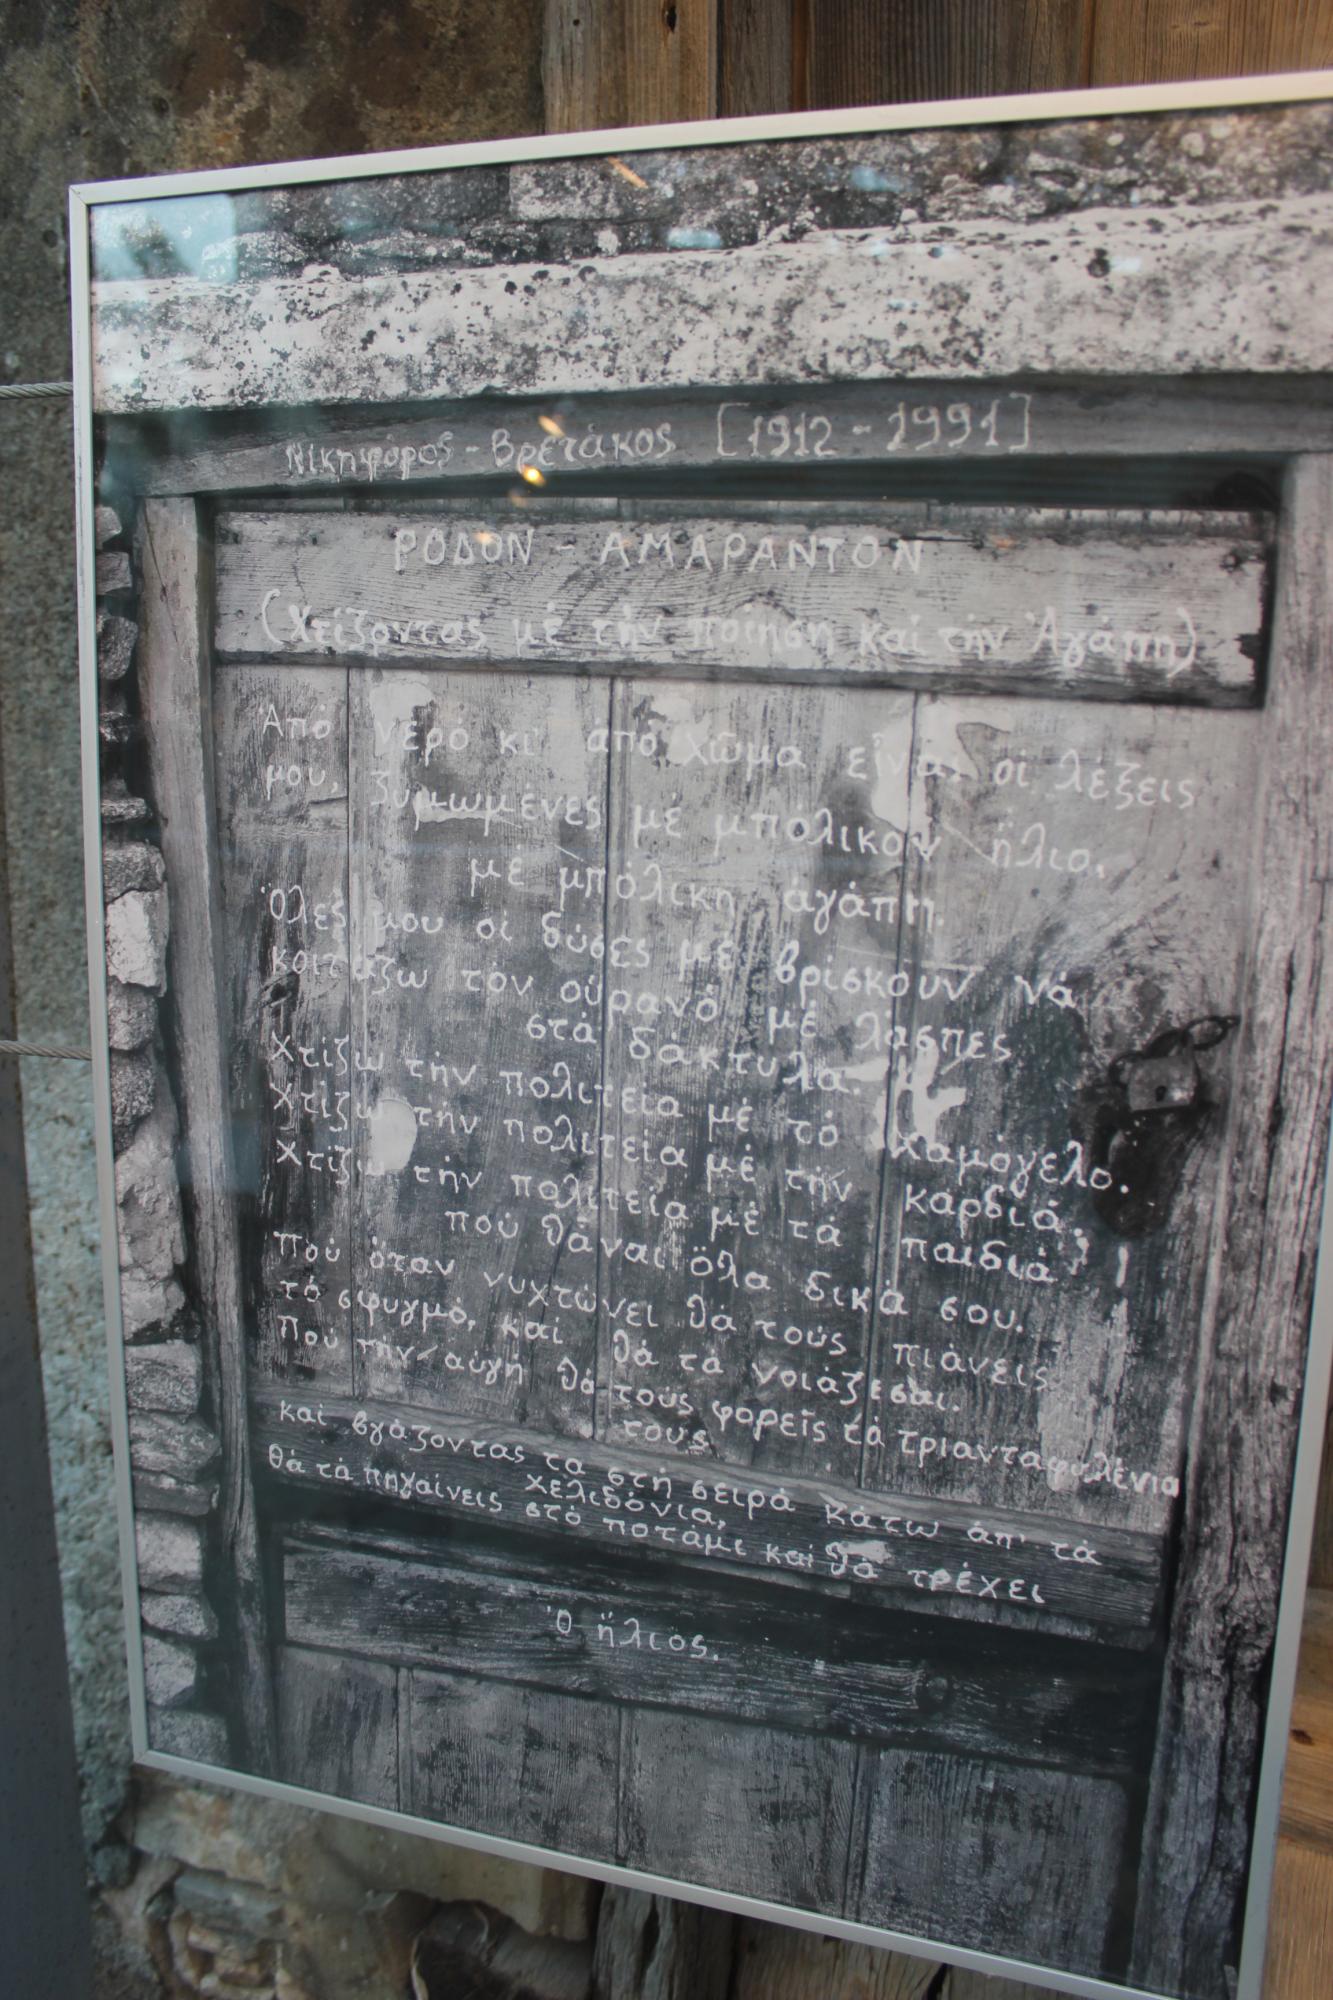 Νικηφόρος - Βρετάκος [1912 - 1991]
ΡΟΔΟΝ - ΑΜΑΡΑΝΤΟΝ
(Χτίζοντας μέ τήν ποίηση καί τήν Ἀγάπη)
Ἀπό νερό κι ἀπό χῶμα εἶναι οἱ λέξεις
μου, ζυμωμένες μέ μπόλικον ἥλιο,
μέ μπόλικη ἀγάπη.
Ὅλες μου οἱ δύσες μέ βρίσκουν νά
κοιτάζω τόν οὐρανό μέ λάσπες
στά δάκτυλα.
Χτίζω τήν πολιτεία μέ τό χαμόγελο.
Χτίζω τήν πολιτεία μέ τήν καρδιά.
Χτίζω τήν πολιτεία μέ τά παιδιά
πού θάναι ὅλα δικά σου.
Πού ὅταν νυχτώνει θά τούς πιάνεις
τό σφυγμό, καί θά τά νοιάζεσαι.
Πού τήν αὐγή θά τούς φορεῖς τά τριανταφυλένια
τους
καί βγάζοντας τα στή σειρά κάτω ἀπ' τά
χελιδόνια,
θά τά πηγαίνεις στό ποτάμι καί θά τρέχει
Ὁ ἥλιος.